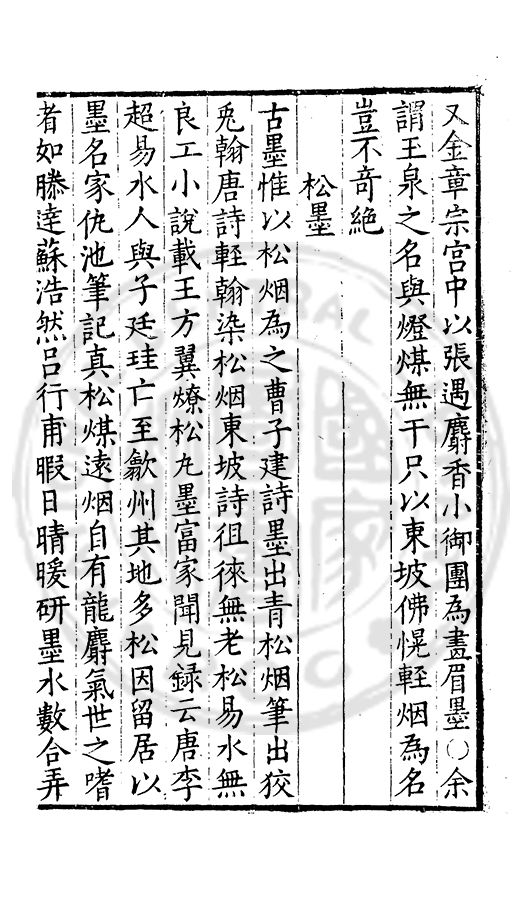 又金章宗宮中以張遇麝香小御團為畫眉墨○余
謂玉泉之名與燈煤無干只以東坡佛幌輕烟為名
豈不奇絕
松墨
古墨惟以松烟為之曹子建詩墨出青松烟筆出狡
兎翰唐詩輕翰染松烟東坡詩徂徠無老松易水無
良工小說載王方翼燎松丸墨富家聞見録云唐李
超易水人與子廷珪亡至歙州其地多松因留居以
墨名家仇池筆記真松煤遠烟自有龍麝氣世之嗜
者如滕達蘇浩然呂行甫暇日晴暖研墨水數合弄